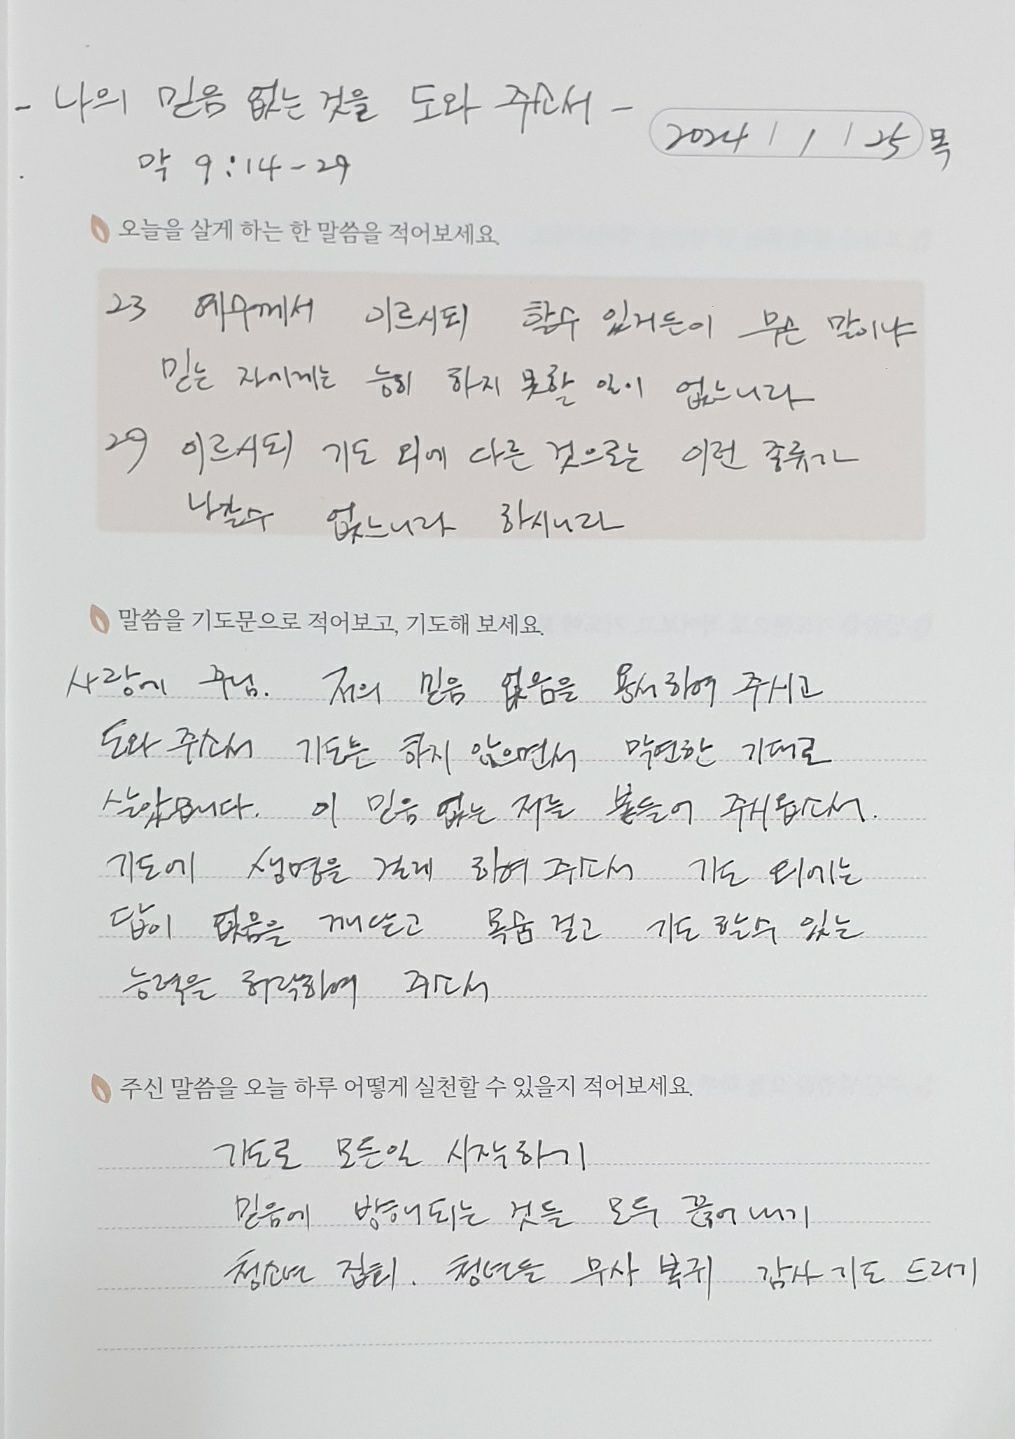 - 나의 믿음 없는 것을 도와 주소서 -
2024 / 1 / 25 목
막 9:14-29
오늘을 살게 하는 한 말씀을 적어보세요.
23 예수께서 이르시되 할수 있거든이 무슨 말이냐
믿는 자에게는 능히 하지 못할 일이 없느니라
29 이르시되 기도 외에 다른 것으로는 이런 종류가
나갈수 없느니라 하시니라
말씀을 기도문으로 적어보고, 기도해 보세요.
사랑에 주님. 저의 믿음 없음을 용서하여 주시고
도와 주소서 기도는 하지 않으면서 막연한 기대로
살았습니다. 이 믿음 없는 저를 붙들어 주시옵소서.
기도에 생명을 걸게 하여 주소서 기도 외에는
답이 없음을 깨닫고 목숨 걸고 기도 할수 있는
능력을 허락하여 주소서
주신 말씀을 오늘 하루 어떻게 실천할 수 있을지 적어보세요.
기도로 모든일 시작하기
믿음에 방해되는 것들 모두 끊어내기
청소년 집회. 청년들 무사 복귀 감사 기도 드리기